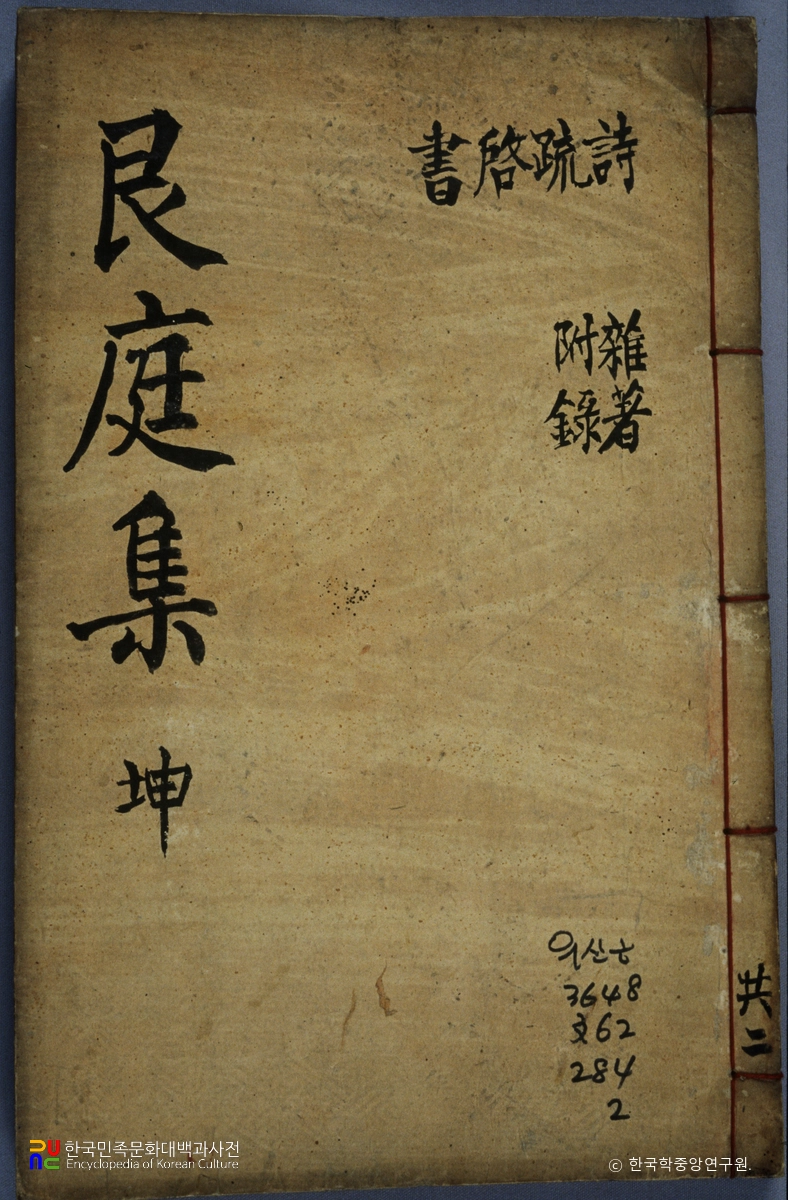 艮庭集 坤
詩疏啓書
雜著
附錄
3648
文62
284
2
共二
한국민족문화대백과사전
Encyclopedia of Korean Culture
© 한국학중앙연구원.